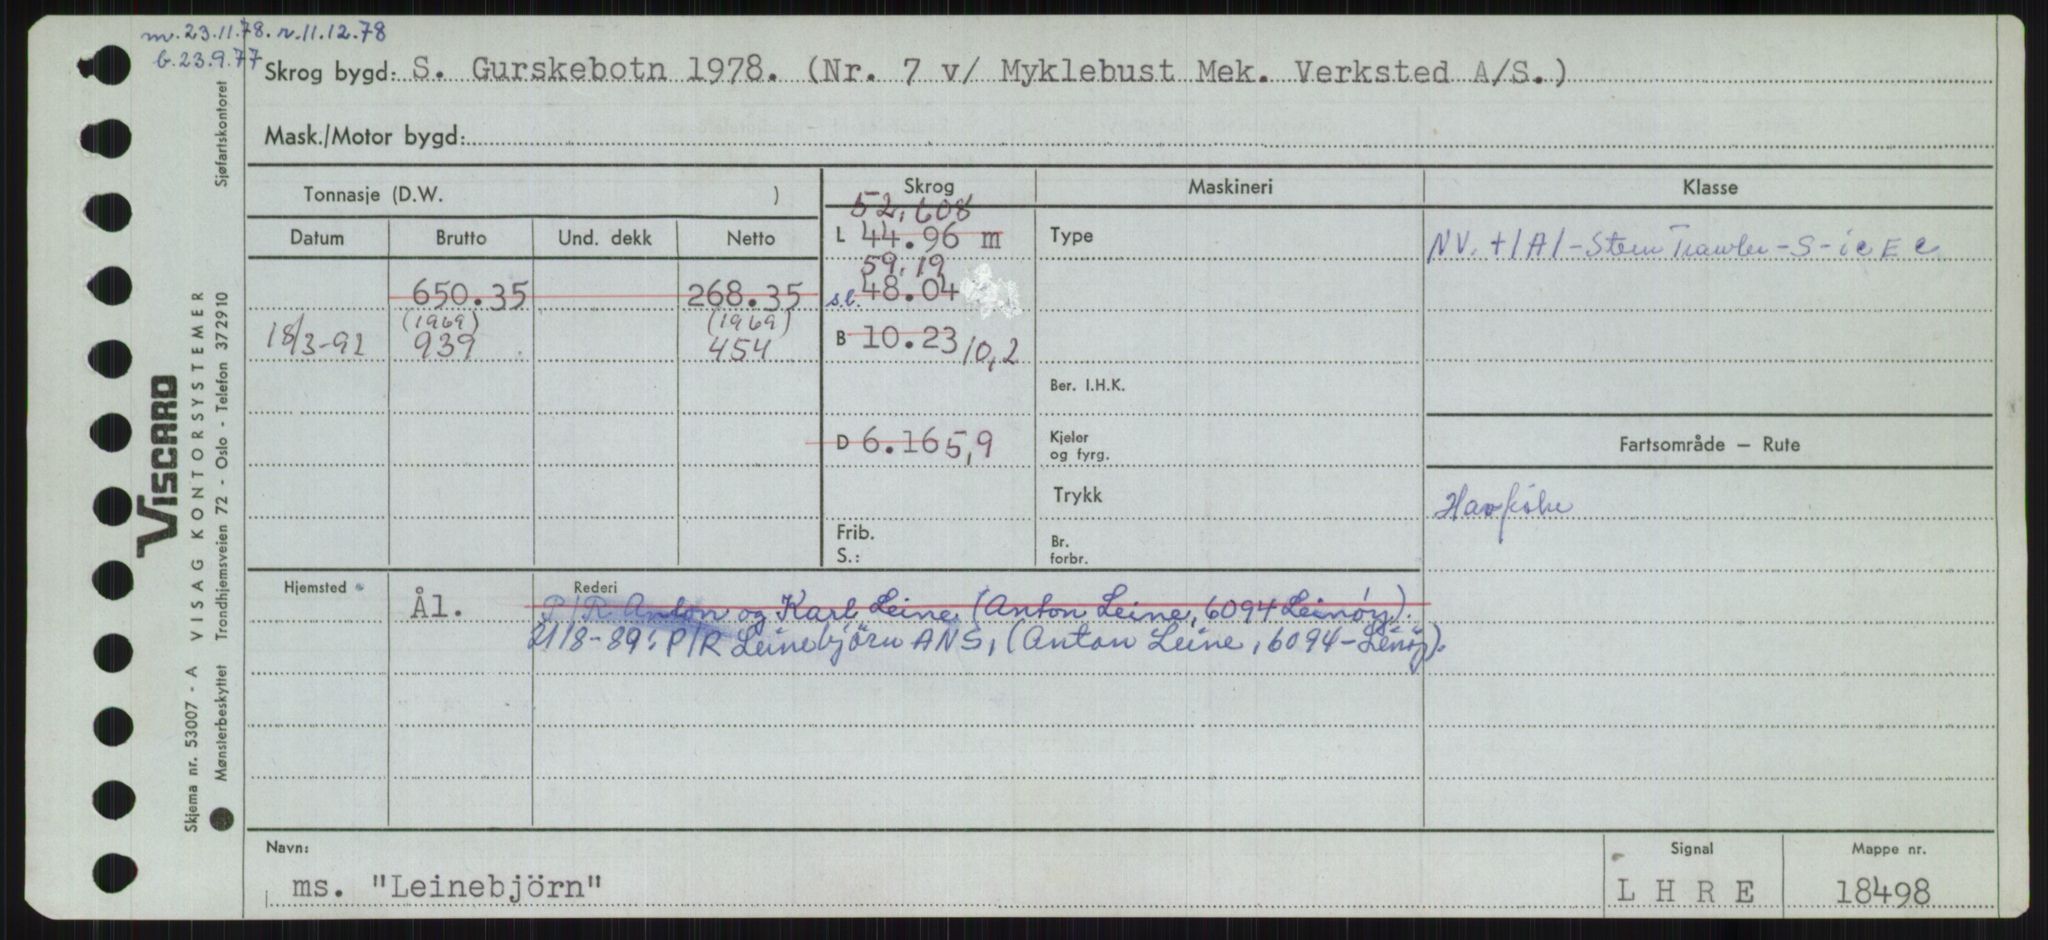 m. 23.11.78. r. 11.12.78
b. 23.9.77
Skrog bygd: S. Gurskebotn 1978. (Nr. 7 v/ Myklebust Mek. Verksted A/S.)
Mask./Motor bygd:
Tonnasje (D.W. )
Skrog
Maskineri
Klasse
Datum
Brutto
Und. dekk
Netto
52,608
L 44.96 m
59.19
s.l. 48.04
B 10.23 10,2
D 6.16 5,9
Frib.
S.:
650.35
268.35
(1969)
(1969)
18/3-92
939
454
Type
Ber. I.H.K.
Kjeler
og fyrg.
Trykk
Br.
forbr.
NV. +1A1-Stern Trawler-S-ice C
Fartsområde — Rute
Havfiske
Hjemsted
Ål.
Rederi
P/R Anton og Karl Leine (Anton Leine, 6094 Leinöy).
21/8-89: P/R Leinebjörn ANS, (Anton Leine, 6094-Leinöy).
Navn:
ms. "Leinebjörn"
Signal
L H R E
Mappe nr.
18498
Skjema nr. 53007 - A VISAG KONTORSYSTEMER
Mønsterbeskyttet Trondhjemsveien 72 - Oslo - Telefon 372910 Sjøfartskontoret
VISCARD